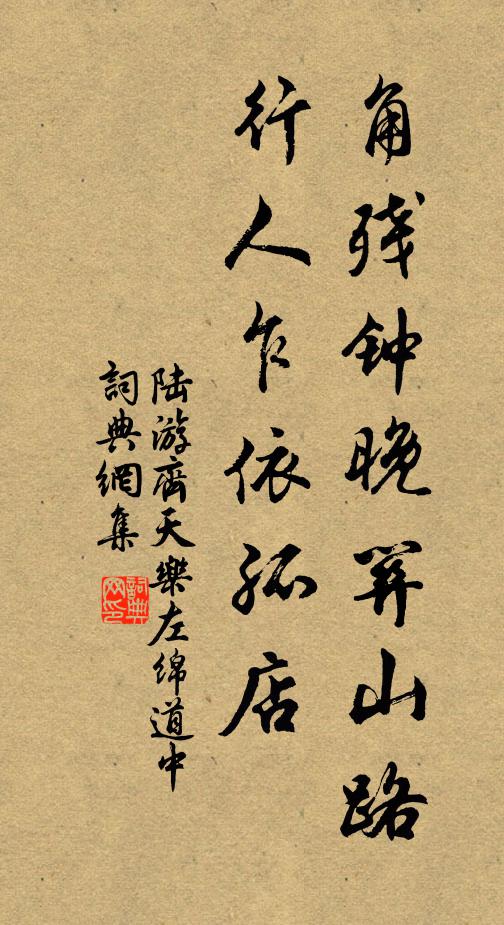 角残钟晚关山路
行人乍依孤店
陆游齊天樂左綿道中
詞典網集
詞典网印